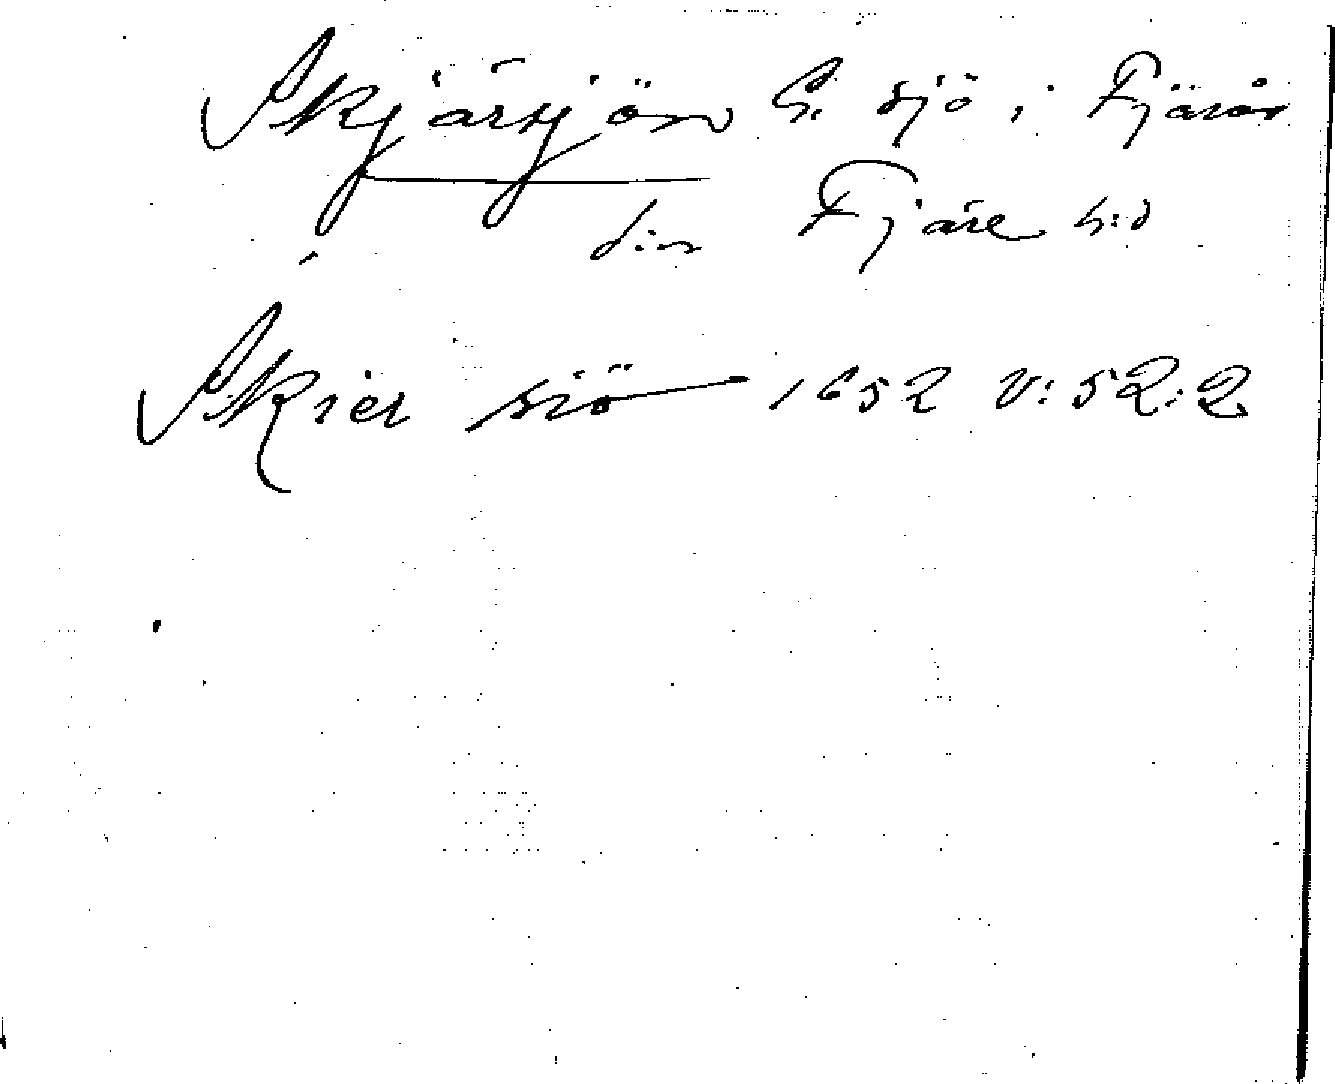 Skjärsjön G. sjö i Fjärås
s:n Fjäre h:d
Skier siö 1652 V: 52:2